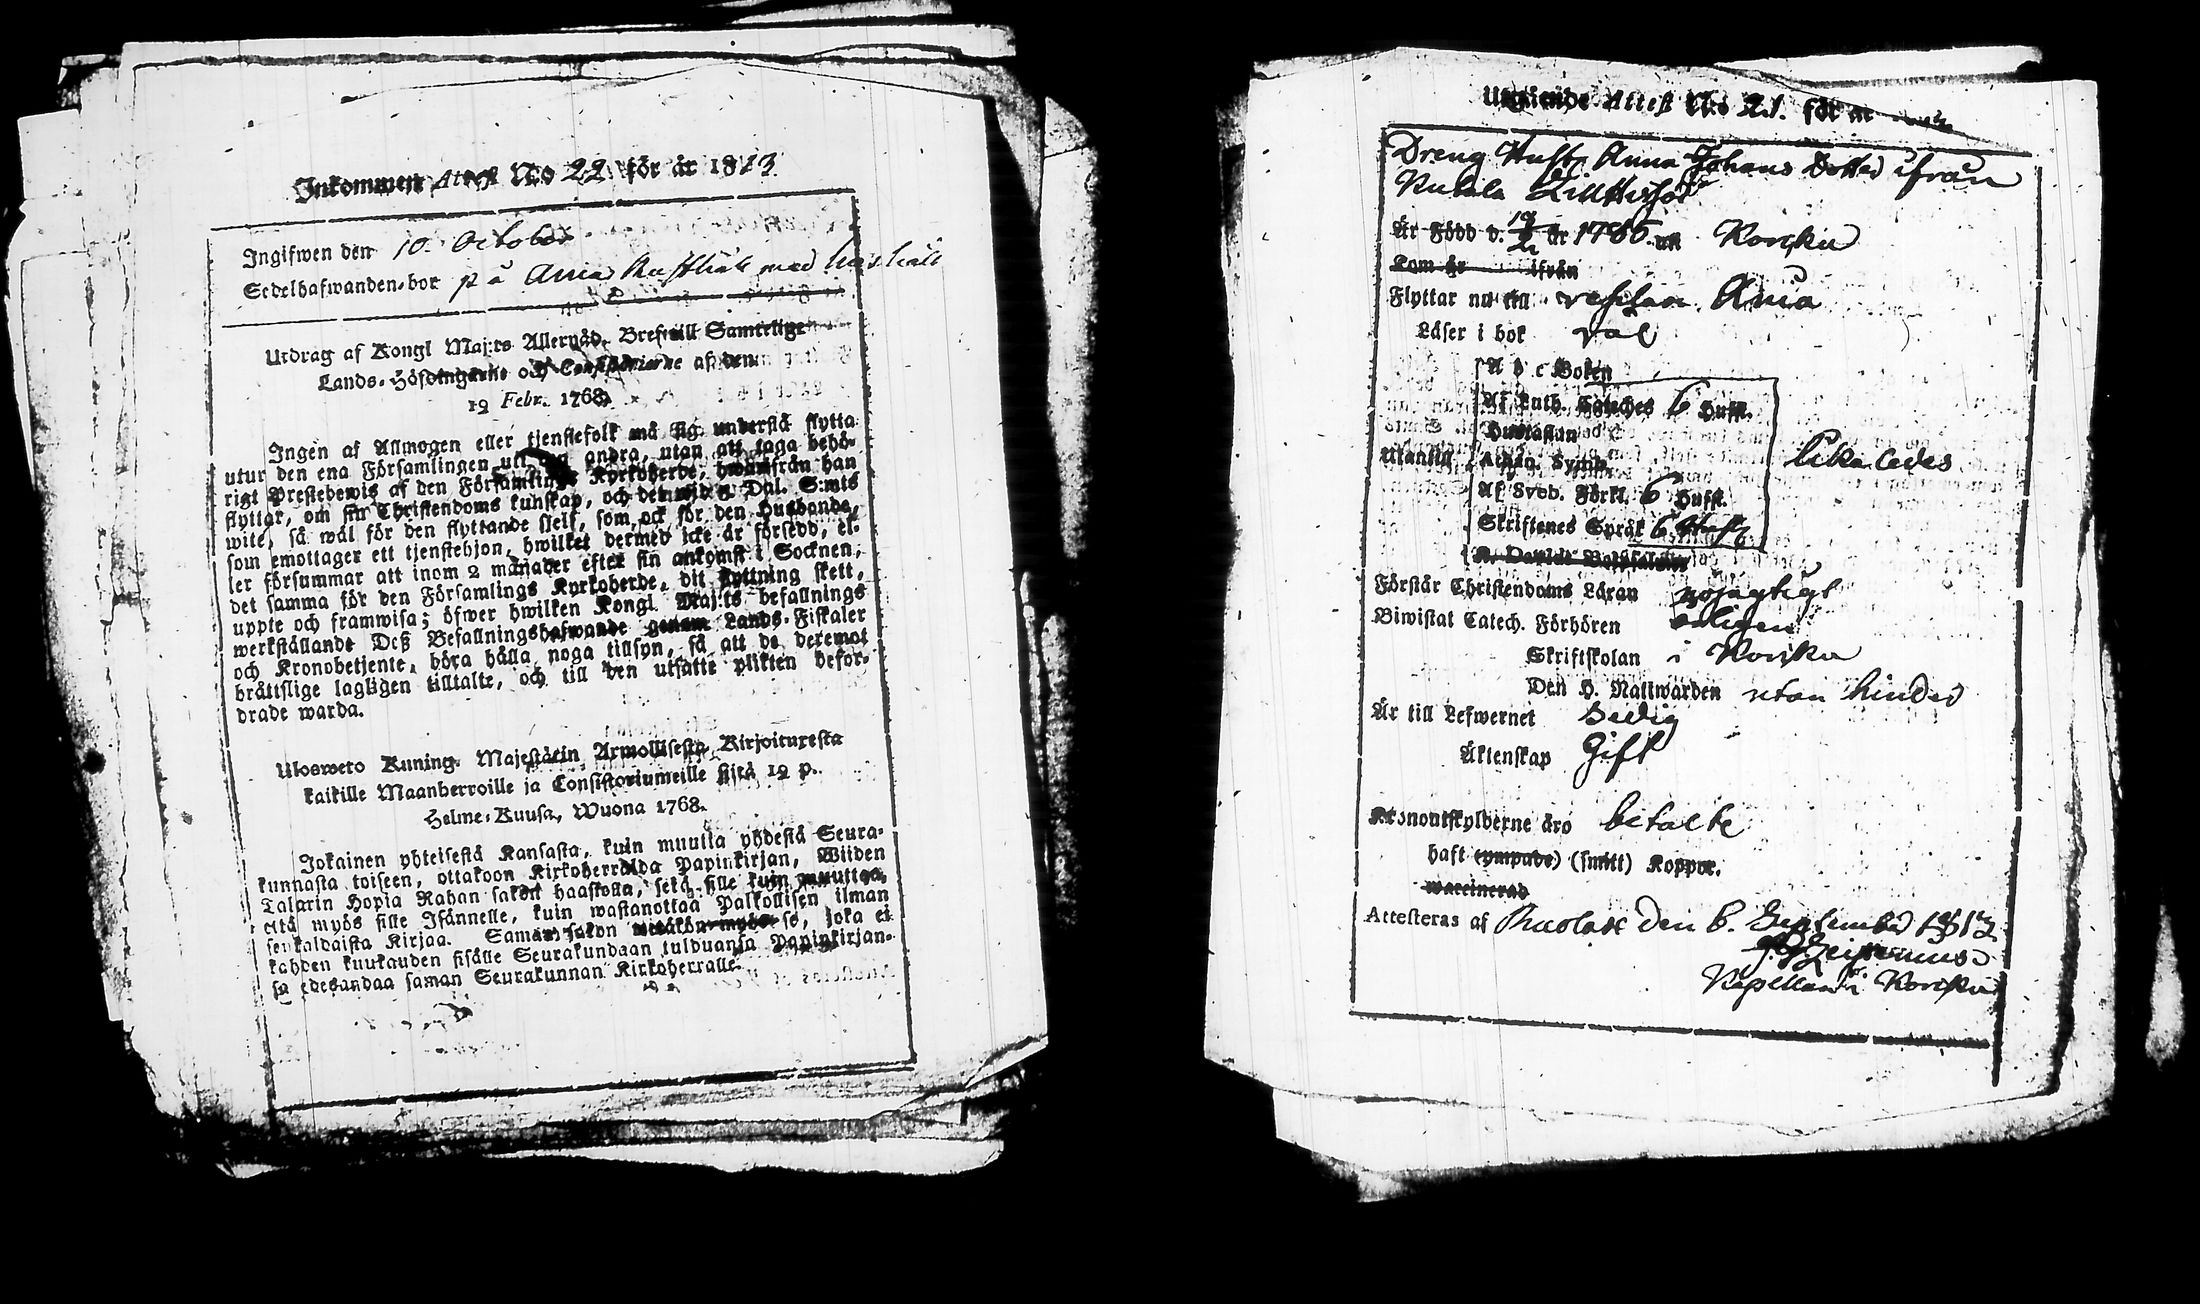 Inkommen Attest No 22 för år 1813.
Ingifwen den 10. October
Sedelhafwanden-bor på Ania Rusthåll med
Utdrag af Kongl Maj:ts Allernåd. Bref till Samtelige
Lands-Höfdingarne och Consistorierne af den
19 Febr. 1768.
Ingen af Allmogen eller tjenstefolk må sig understå flytta
utur den ena Församlingen uti den andra, utan att taga behö-
rigt Prestebewis af den Församlings Kyrkoherde, hwarifrån han
flyttar, om sin Christendoms kunskap, och det wid 5 Dal. S:mts
wite, så wäl för den flyttande sielf, som ock för den Husbonde,
som emottager ett tjenstehjon, hwilket dermed icke är försedd, el-
ler försummar att inom 2 månader efter sin ankomst i Socknen,
det samma för den Församlings Kyrkoherde, dit flyttning skett,
uppte och framwisa; öfwer hwilken Kongl Maj:ts befallnings
werkställande Deß Befallningshafwande genom Lands-Fiskaler
och Kronobetjente, böra hålla noga tillsyn, så att de deremot
bråttslige lagligen tilltalte, och till den utsatte plikten befor-
drade warda.
Ulosweto Kuning. Majestätin Armollisesta Kirjoituxesta
kaikille Maanherroille ja Consistoriumeille siitä 19 p.
Helme-Kuusa, Wuona 1768.
Jokainen yhteisestä Kansasta, kuin muutta yhdestä Seura-
kunnasta toiseen, ottakoon Kirkoherralda Papinkirjan, Wiiden
Talarin Hopia Rahan sakon haastolla, sekä sille kuin muuttaa,
että myös sille Isännelle, kuin wastanottaa Palkollisen ilman
senkaldaista Kirjaa. Saman sakon wetäkön myös se, joka ei
kahden kuukauden sisälle Seurakundaan tulduansa Papinkirjan-
sa edesandaa saman Seurakunnan Kirkoherralle.
Utgående Attest No 21. för år
Dreng Hustr Anna Johans Dotter ifrån
Kutala
Är Född d. 19/2 år 1786. uti Korpku
Kom år ifrån
Flyttar nu till Ania
Läser i bok väl
A b c Boken
Af Luth. Cateches 6 Hufst.
Hustaflan
Utantill Athan. Symb. lika ledes
Af Sveb. Förkl. 6 Hufst.
Skriftenes Språk 6 Hufst
K. Davids Botpsalmer
Förstår Christendoms Läran nöjagtigt
Biwistat Catech. Förhören
Skriftskolan i
Den H. Nattwarden utan hinder
Är till Lefwernet Sedig
Äktenskap Gift
Kronoutskylderne äro betalte
haft (ympade) (smitt) Koppor.
waccinerad
Attesteras af den 6. September 1813
Capellan i